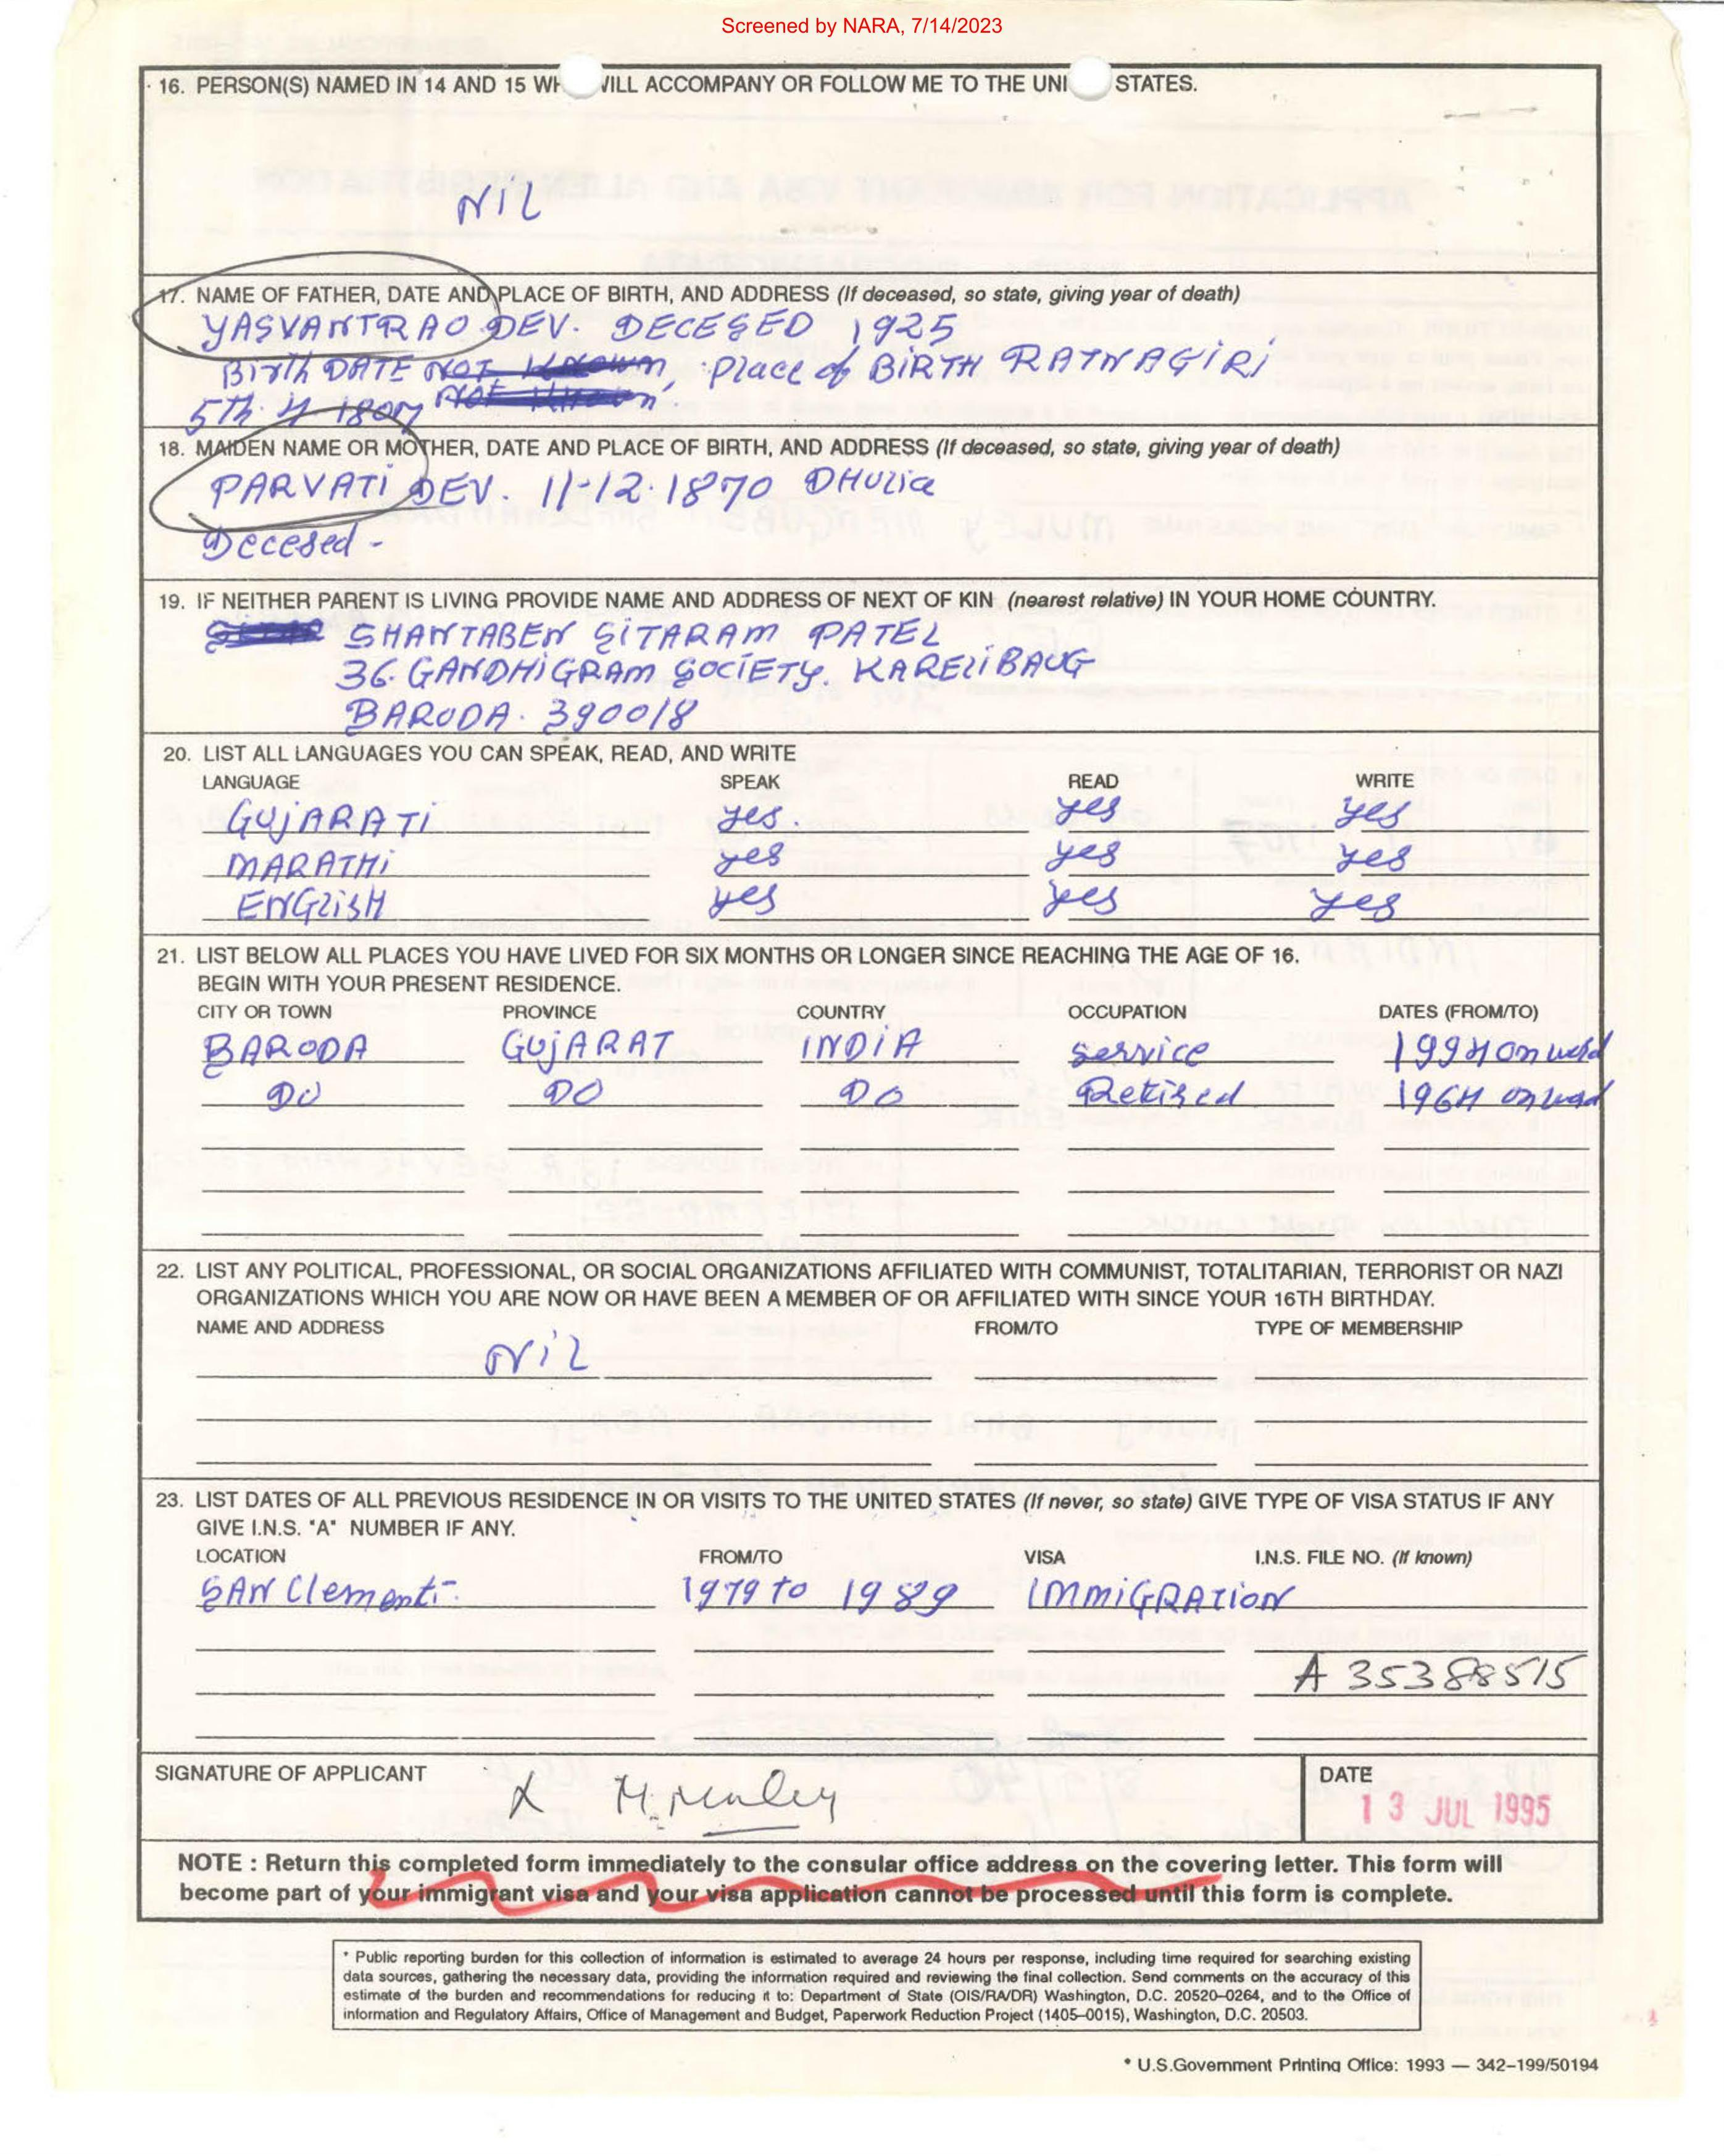 Screened by NARA, 7/14/2023
16. PERSON(S) NAMED IN 14 AND 15 WH ILL ACCOMPANY OR FOLLOW ME TO THE UNI STATES.
NIL
17. NAME OF FATHER, DATE AND PLACE OF BIRTH, AND ADDRESS (If deceased, so state, giving year of death)
YASVANTRAO DEV. DECESED 1925
Birth DATE NOT Known, Place of BIRTH RATNAGIRI
5th. Not Known
18. MAIDEN NAME OR MOTHER, DATE AND PLACE OF BIRTH, AND ADDRESS (If deceased, so state, giving year of death)
PARVATI DEV. 11-12.1870 DHULIA
Decesed -
19. IF NEITHER PARENT IS LIVING PROVIDE NAME AND ADDRESS OF NEXT OF KIN (nearest relative) IN YOUR HOME COUNTRY.
SHANTABEN SITARAM PATEL
36. GANDHIGRAM SOCIETY. KARELIBAUG
BARODA. 390018
20. LIST ALL LANGUAGES YOU CAN SPEAK, READ, AND WRITE
LANGUAGE SPEAK READ WRITE
GUJARATI yes. yes yes
MARATHI yes yes yes
ENGLISH yes yes yes
21. LIST BELOW ALL PLACES YOU HAVE LIVED FOR SIX MONTHS OR LONGER SINCE REACHING THE AGE OF 16.
BEGIN WITH YOUR PRESENT RESIDENCE.
CITY OR TOWN PROVINCE COUNTRY OCCUPATION DATES (FROM/TO)
BARODA GUJARAT INDIA service 1994 onward
DO DO DO Retired 1964 onward
22. LIST ANY POLITICAL, PROFESSIONAL, OR SOCIAL ORGANIZATIONS AFFILIATED WITH COMMUNIST, TOTALITARIAN, TERRORIST OR NAZI
ORGANIZATIONS WHICH YOU ARE NOW OR HAVE BEEN A MEMBER OF OR AFFILIATED WITH SINCE YOUR 16TH BIRTHDAY.
NAME AND ADDRESS FROM/TO TYPE OF MEMBERSHIP
Nil
23. LIST DATES OF ALL PREVIOUS RESIDENCE IN OR VISITS TO THE UNITED STATES (If never, so state) GIVE TYPE OF VISA STATUS IF ANY
GIVE I.N.S. "A" NUMBER IF ANY.
LOCATION FROM/TO VISA I.N.S. FILE NO. (If known)
SAN Clementi- 1979 to 1989 IMMIGRATION
A 35388515
SIGNATURE OF APPLICANT X M. Muley DATE
13 JUL 1995
NOTE : Return this completed form immediately to the consular office address on the covering letter. This form will
become part of your immigrant visa and your visa application cannot be processed until this form is complete.
* Public reporting burden for this collection of information is estimated to average 24 hours per response, including time required for searching existing
data sources, gathering the necessary data, providing the information required and reviewing the final collection. Send comments on the accuracy of this
estimate of the burden and recommendations for reducing it to: Department of State (OIS/RA/DR) Washington, D.C. 20520-0264, and to the Office of
information and Regulatory Affairs, Office of Management and Budget, Paperwork Reduction Project (1405-0015), Washington, D.C. 20503.
* U.S.Government Printing Office: 1993 — 342-199/50194